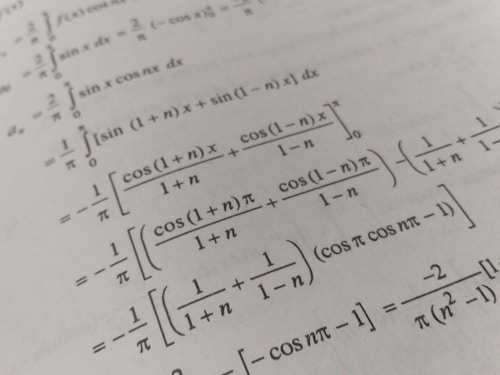 = 2/π ∫₀ f(x) cos n
= 2/π ∫₀ sin x dx = 2/π (−cos x)₀^π =
aₙ = 2/π ∫₀^π sin x cos nx dx
= 1/π ∫₀^π [sin (1 + n) x + sin (1 − n) x] dx
= −1/π [cos (1 + n) x/(1 + n) + cos (1 − n) x/(1 − n)]₀^π
= −1/π [(cos (1 + n) π/(1 + n) + cos (1 − n) π/(1 − n)) − (1/(1 + n) + 1/(1 −
= −1/π [(1/(1 + n) + 1/(1 − n)) (cos π cos nπ − 1)]
[− cos nπ − 1] = −2/(π (n² − 1)) [1